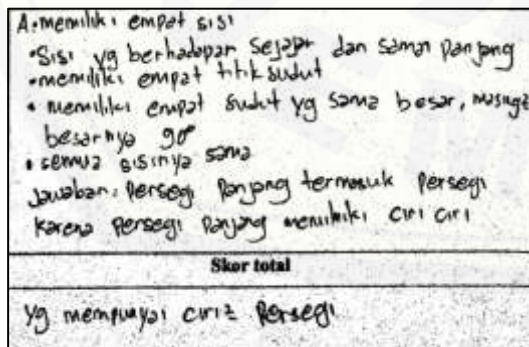 A. memiliki empat sisi
• Sisi yg berhadapan sejajar dan sama panjang
• memiliki empat titik sudut
• memiliki empat sudut yg sama besar, masing2
besarnya 90°
• semua sisinya sama
Jawaban: Persegi Panjang termasuk persegi
karena Persegi Panjang memiliki ciri ciri
Skor total
yg mempunyai ciri2 Persegi